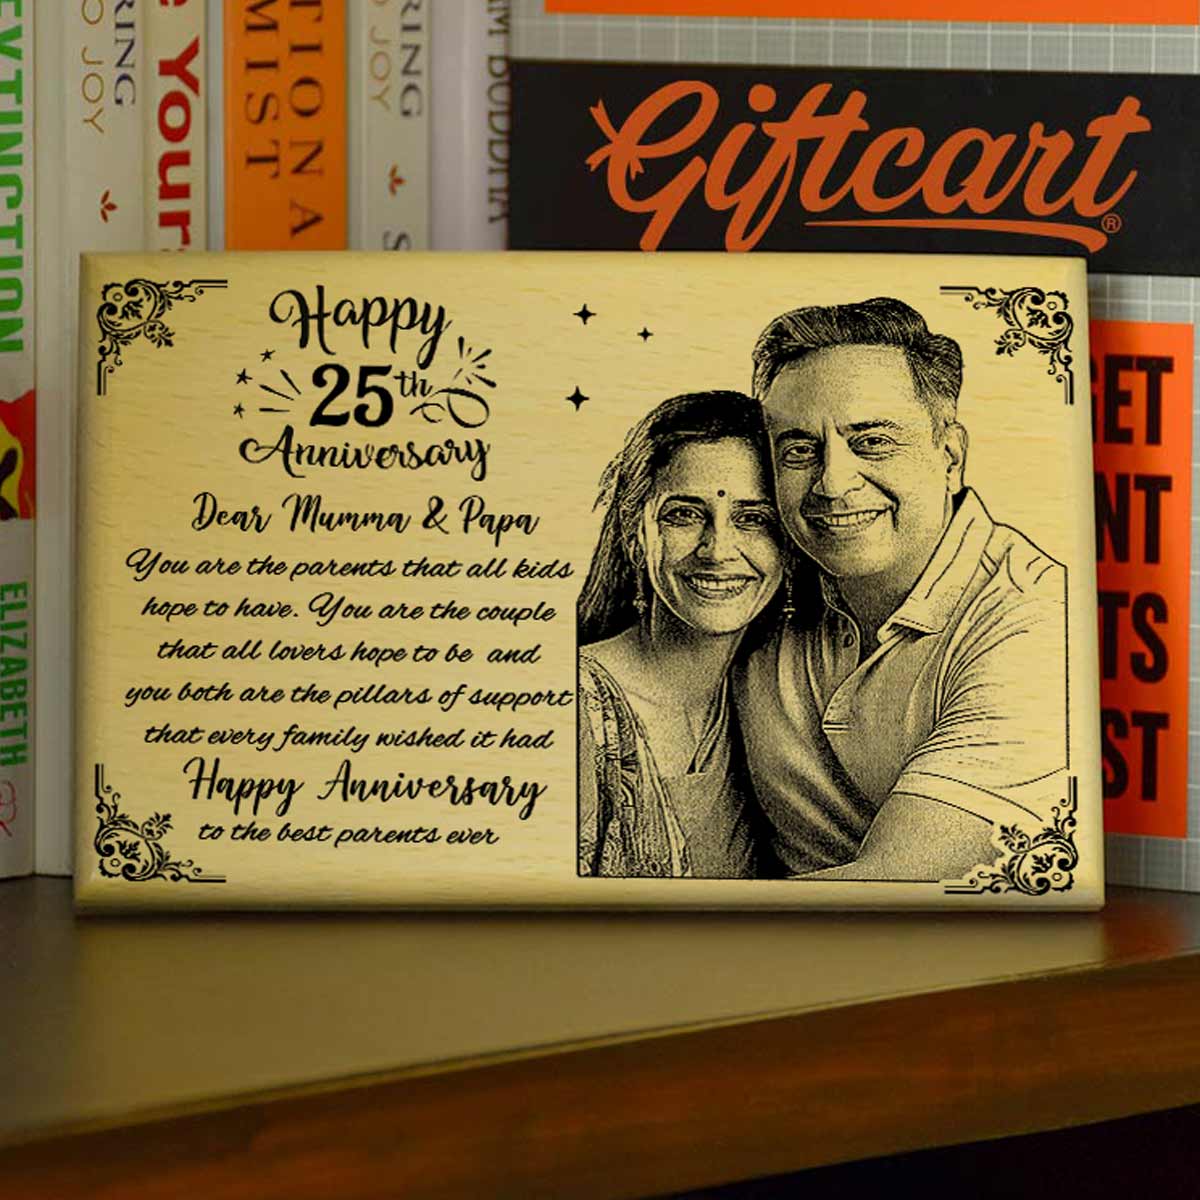 EXTINCTION
ELIZABETH
RING
O JOY
Your
TION A
MIST
RING
O JOY
S
M BUDDHA
Giftcart®
GET
NT
TS
ST
Happy
25th
Anniversary
Dear Mumma & Papa
You are the parents that all kids
hope to have. You are the couple
that all lovers hope to be and
you both are the pillars of support
that every family wished it had
Happy Anniversary
to the best parents ever